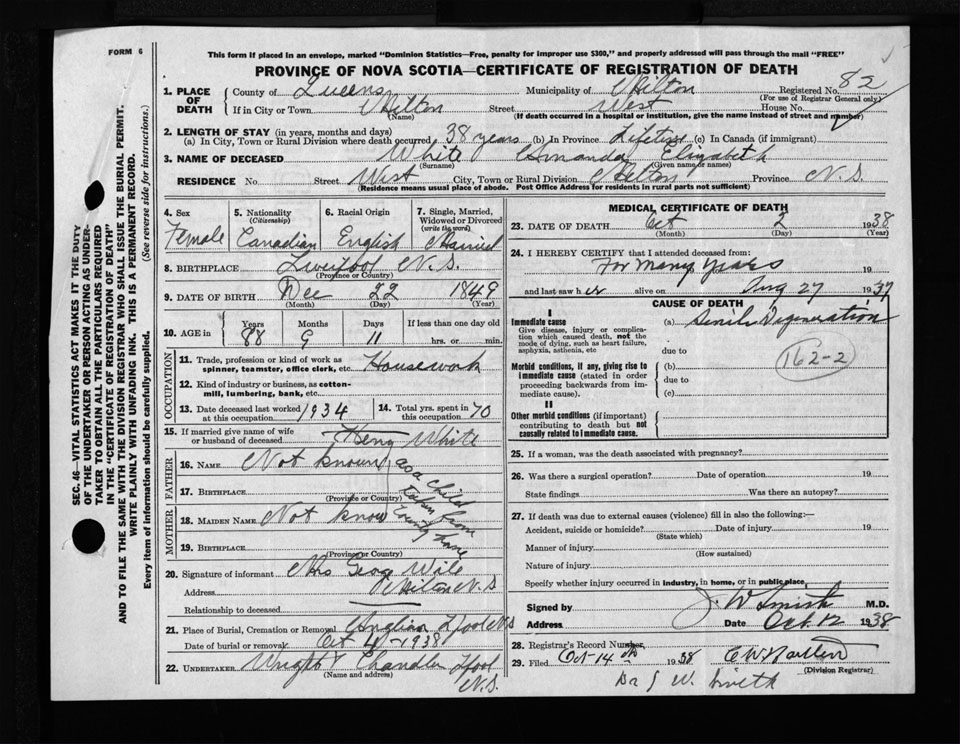 FORM 6
This form if placed in an envelope, marked "Dominion Statistics—Free, penalty for improper use $300," and properly addressed will pass through the mail "FREE"
PROVINCE OF NOVA SCOTIA—CERTIFICATE OF REGISTRATION OF DEATH
1. PLACE OF DEATH County of Queens Municipality of Milton Registered No. 82
(For use of Registrar General only)
If in City or Town Milton Street West House No.
(Name) (If death occurred in a hospital or institution, give the name instead of street and number)
2. LENGTH OF STAY (in years, months and days)
(a) In City, Town or Rural Division where death occurred 38 years (b) In Province Lifetime (c) In Canada (if immigrant)
3. NAME OF DECEASED White Amanda Elizabeth
(Surname) (Given name or names)
RESIDENCE No. Street West City, Town or Rural Division Milton Province N.S.
(Residence means usual place of abode. Post Office Address for residents in rural parts not sufficient)
4. Sex 5. Nationality (Citizenship) 6. Racial Origin 7. Single, Married, Widowed or Divorced (write the word)
Female Canadian English Married
8. BIRTHPLACE Liverpool N.S.
(Province or Country)
9. DATE OF BIRTH Dec 22 1849
(Month) (Day) (Year)
10. AGE in Years Months Days If less than one day old
88 9 11 hrs. or min.
OCCUPATION
11. Trade, profession or kind of work as spinner, teamster, office clerk, etc. Housework
12. Kind of industry or business, as cotton-mill, lumbering, bank, etc.
13. Date deceased last worked at this occupation 1934 14. Total yrs. spent in this occupation 70
15. If married give name of wife or husband of deceased Henry White
FATHER
16. NAME Not known
17. BIRTHPLACE
(Province or Country)
as a child
taken from
County home
MOTHER
18. MAIDEN NAME Not know
19. BIRTHPLACE
(Province or Country)
20. Signature of informant Mrs Geog
Address Milton N.S
Relationship to deceased
21. Place of Burial, Cremation or Removal Lpool N.S
Date of burial or removal Oct 4 - 1938
22. UNDERTAKER Wright Chandler Lpool
(Name and address) N.S.
MEDICAL CERTIFICATE OF DEATH
23. DATE OF DEATH Oct 2 1938
(Month) (Day) (Year)
24. I HEREBY CERTIFY that I attended deceased from:
For many years 19
and last saw her alive on Aug 27 1937
CAUSE OF DEATH
I
Immediate cause (a) Senile Degeneration
Give disease, injury or complication which caused death, not the mode of dying, such as heart failure, asphyxia, asthenia, etc
due to
162-2
Morbid conditions, if any, giving rise to immediate cause (stated in order proceeding backwards from immediate cause).
(b)
due to
(c)
II
Other morbid conditions (if important) contributing to death but not causally related to immediate cause.
25. If a woman, was the death associated with pregnancy?
26. Was there a surgical operation? Date of operation 19
State findings Was there an autopsy?
27. If death was due to external causes (violence) fill in also the following:—
Accident, suicide or homicide? Date of injury 19
(State which)
Manner of injury
(How sustained)
Nature of injury
Specify whether injury occurred in industry, in home, or in public place,
Signed by J. W Smith M.D.
Address Date Oct. 12 1938
28. Registrar's Record Number
29. Filed Oct-14 th 1938
(Division Registrar)
Dr J W. Smith
SEC. 46—VITAL STATISTICS ACT MAKES IT THE DUTY
OF THE UNDERTAKER OR PERSON ACTING AS UNDER-
TAKER TO OBTAIN ALL THE PARTICULARS REQUIRED
IN THE "CERTIFICATE OF REGISTRATION OF DEATH"
AND TO FILE THE SAME WITH THE DIVISION REGISTRAR WHO SHALL ISSUE THE BURIAL PERMIT.
WRITE PLAINLY WITH UNFADING INK. THIS IS A PERMANENT RECORD.
Every item of information should be carefully supplied. (See reverse side for instructions.)